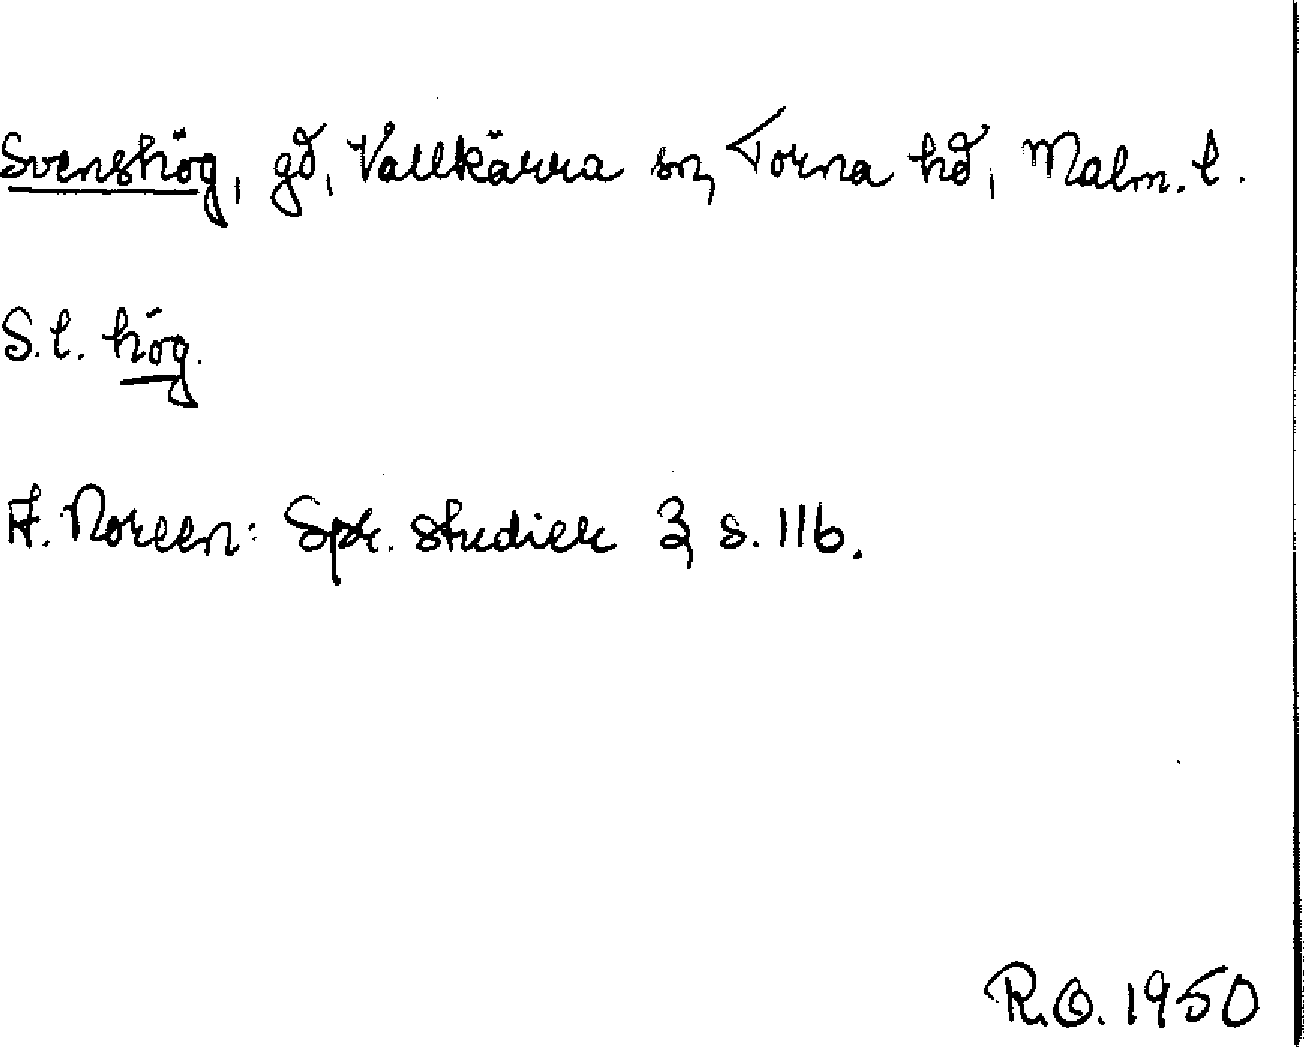 Svenshög, gd, Vallkärra sn, Torna hd, Malm. l.
S. l. hög.
A. Noreen: Spr. studier 3, s. 116.
R.O. 1950